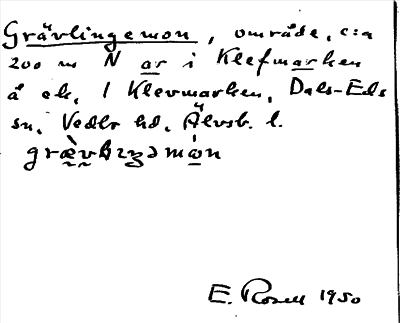 Grävlingemon, område, c:a
200 m N ar i Klefmarken
å ek, 1 Klevmarken, Dals-Eds
sn, Vedbo hd, Älvsb. l.
E. Rosell 1950